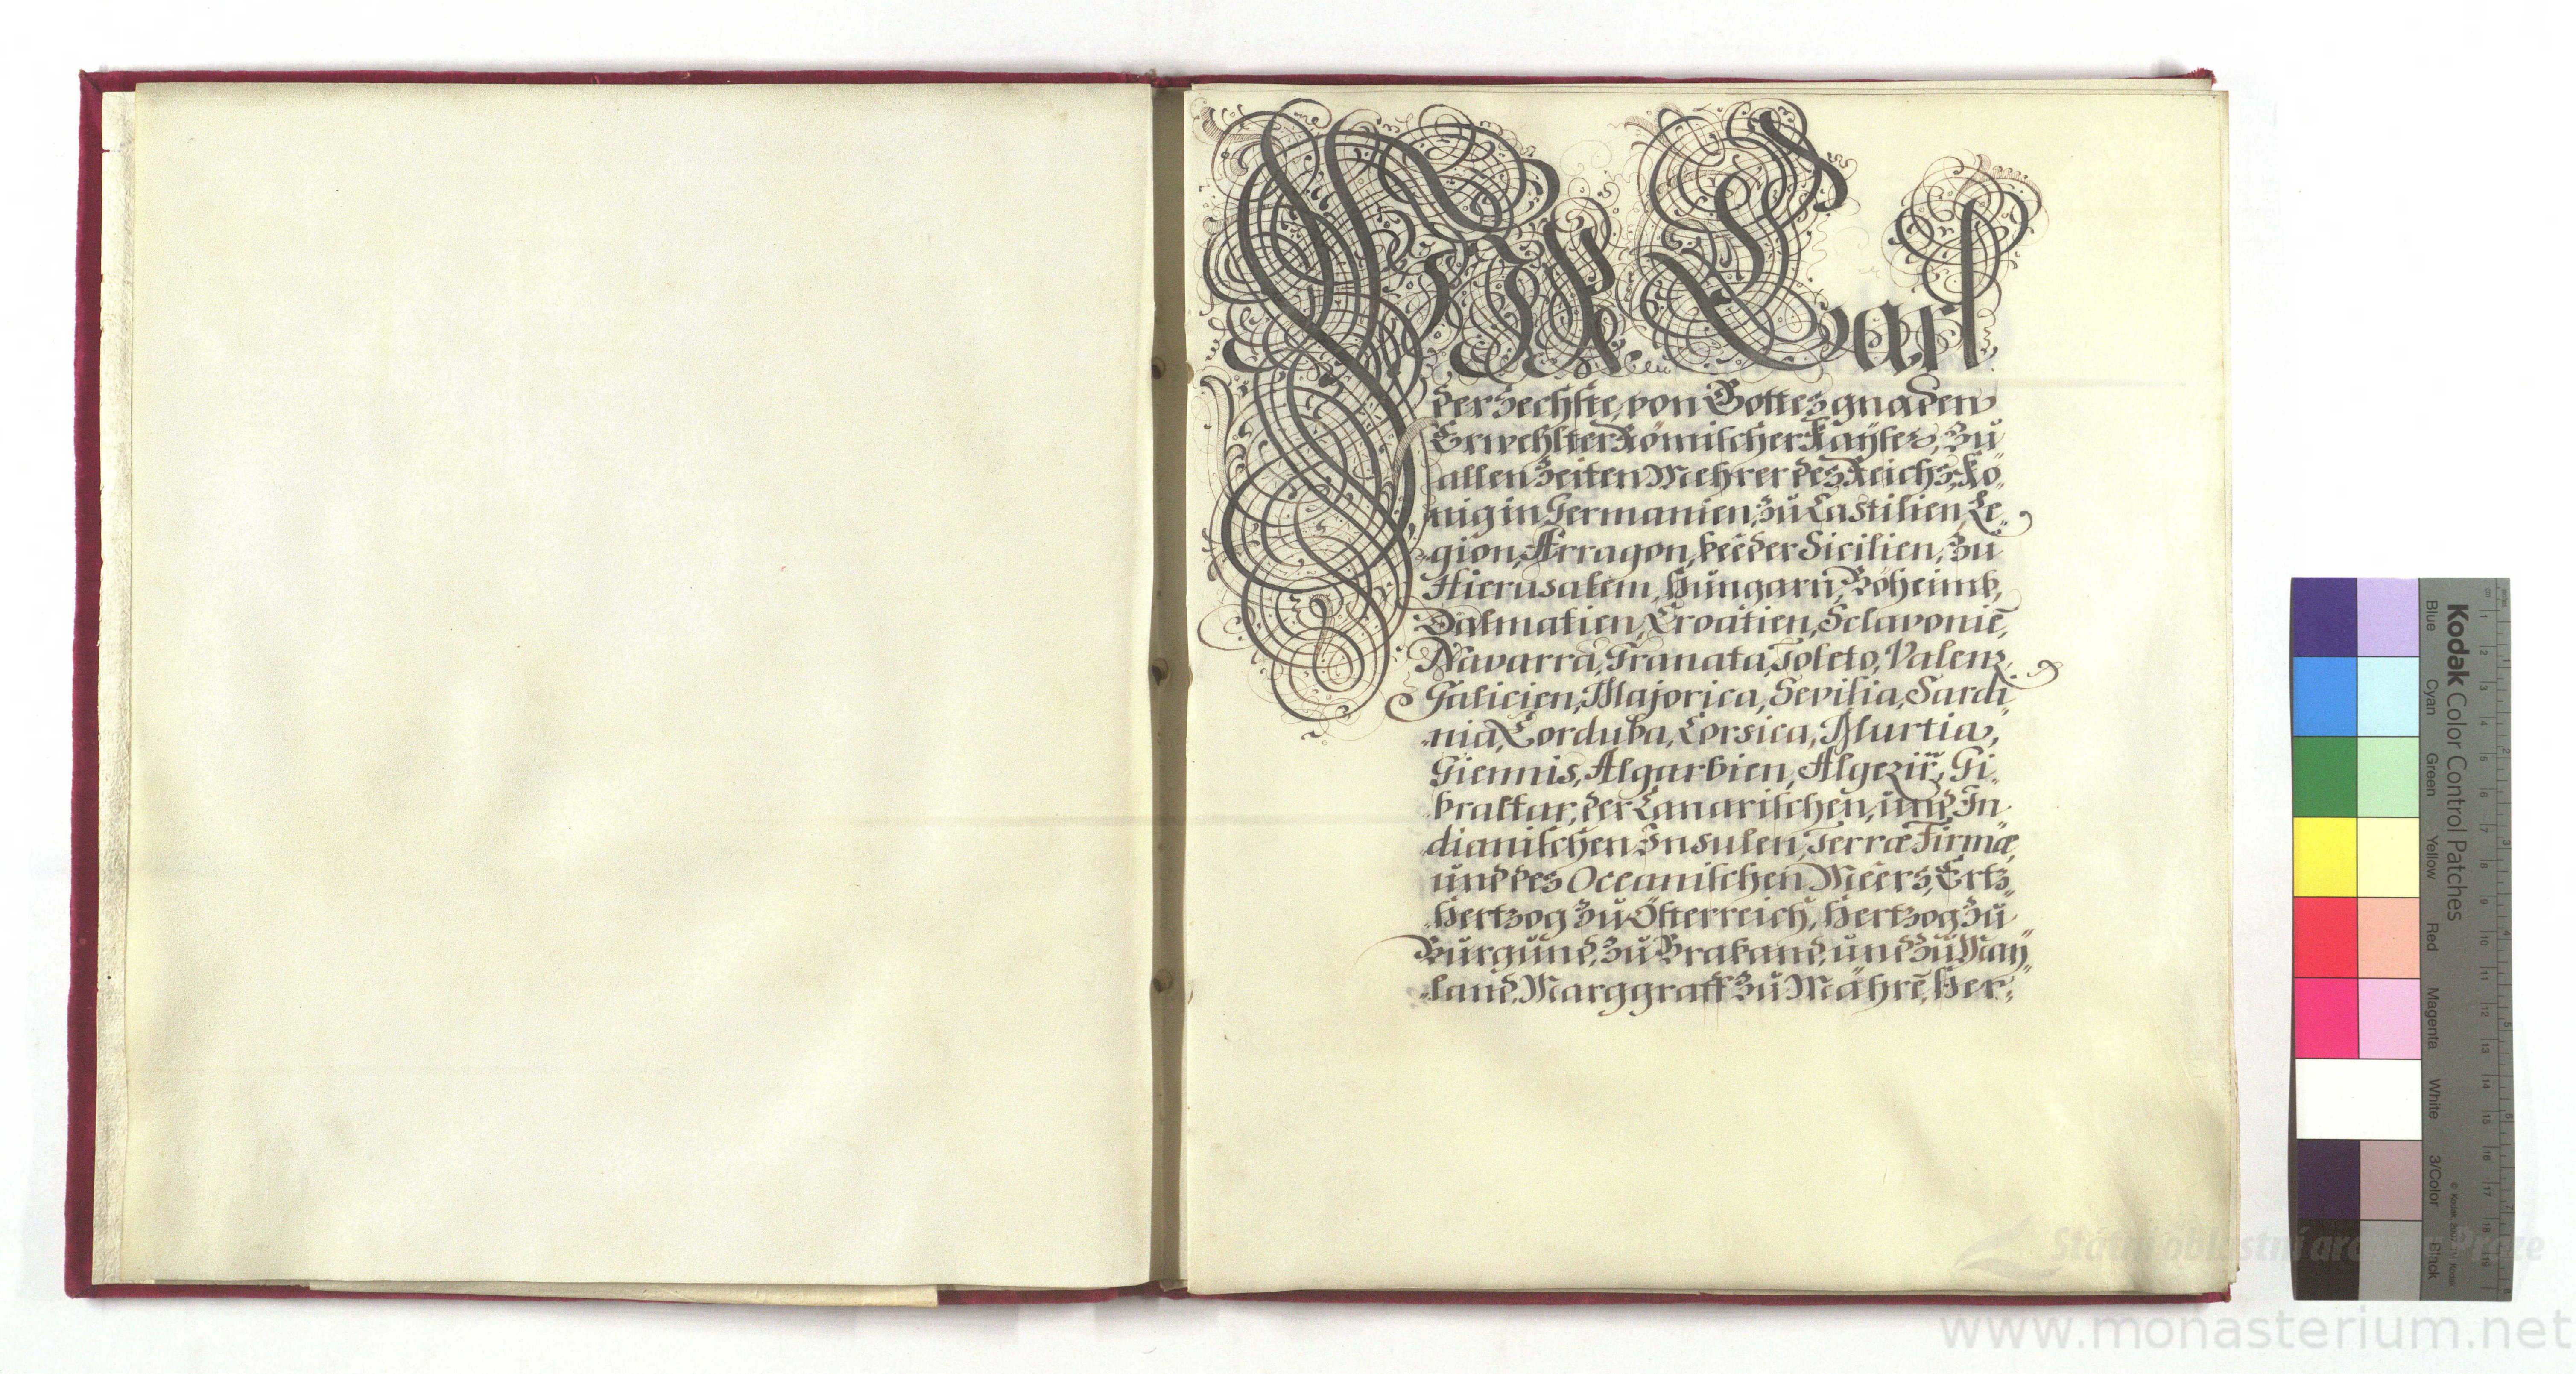 Wir Carl
der Sechste, von Gottes gnaden
Erwehlter Römischer Kaÿser, zu
allen Zeiten Mehrer des Reichs, Kö„
nig in Germanien, zu Castilien, Le„
gion, Arragon, beeder Sicilien, zu
Hierusalem, Hungarn, Böheimb,
Dalmatien, Croatien, Sclavonie͂,
Navarra, Granata, Toleto, Valenz,
Galicien, Majorica, Sevilia, Sardi„
nia, Corduba, Corsica, Murtia,
Giennis, Algarbien, Algezir̃, Gi„
braltar, der Canarischen, und In„
dianischen Insulen, Terræ Firmæ,
und des Oceanischen Meers, Ertz„
Hertzog zu Österreich, Hertzog zu
Burgund, zu Braband, und zu May„
land, Marggraff zu Mähre͂, Her„
Kodak Color Control Patches
Blue Cyan Green Yellow Red Magenta White 3/Color Black
© Kodak, 2007, TM: Kodak
Státní oblastní archiv v Praze
www.monasterium.net